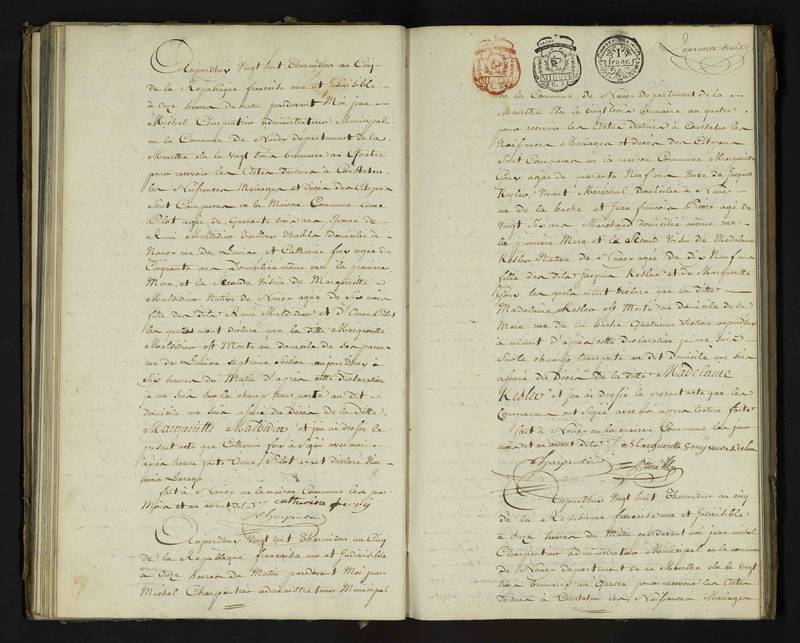 Aujourdhuy Vingt huit Thermidor an Cinq
de la Republique francaise une et Indivisible
à onze heures du matin pardevant Moi jean
Michel Charpentier administrateur Municipal
en la Commune de Nancy departement de la
Meurthe elu le vingt trois brumaire an Quatre
pour recevoir les Actes destines à Constater
les Naissances Mariages et décès des Citoyens
Sont Comparus en la Maison Commune Anne
Pilot agée de Quarante trois ans Epouse de
Remi Maldidier domicilié à
Nancy rue de et Catherine agée de
Cinquante ans Domiciliée même rue la premiere
Mere et la Seconde Voisine de Marguerite
Maldidier Native de Nancy agée de Six mois
fille des dits Remi Maldidier et d'Anne Pilot
les quelles m'ont déclaré que la ditte Marguerite
Maldidier est Morte au domicile de Ses parens
rue de Section aujourdhuy à
Six heures du Matin d'après cette déclaration
je me suis sur le champ transporté au dit
domicile me suis assuré du Décès de la ditte
Marguerite Maldidier et j'ai dressé le
présent acte que Catherine à Signé avec moi
après lecture faite Anne Pilot ayant déclaré
fait à Nancy en la maison Commune les jour
Mois et an avant dits catherine
Charpentier
Aujourdhuy Vingt huit Thermidor an Cinq
de la Republique francaise une et Indivisible
à Onze heures du Matin pardevant Moi jean
Michel Charpentier administrateur Municipal
1
franc
en la Commune de Nancy departement de la
Meurthe elu le vingt trois brumaire an quatre
pour recevoir les Actes destines à Constater les
Naissances Mariages et décès des Citoyens
Sont Comparus en la maison Commune Marguerite
Gouy agée de quarante Neuf ans Veuve de Jacques
Kesler Vivant Marechal Domiciliée à Nancy
rue de la hache et Jean francois agé de
Vingt Six ans Marchand domicilié même rue
la premiere Mere et le Second Voisin de Madelaine
Kesler Native de Nancy agée de Dix Neuf ans
fille des dits Jacques Kesler et de Marguerite
Gouy les quels m'ont déclaré que la ditte
Madelaine Kesler est Morte au domicile de sa
Mere rue de la hache Quatrieme Section aujourdhuy
à minuit d'après cette Déclaration je me suis
Sur le champ transporté au dit Domicile me suis
assuré du Décès de la ditte Madelaine
Kesler et j'ai dressé le present acte que les
Comparans ont Signé avec moi après lecture faite
fait à Nancy en la maison Commune les jour
mois et an avant dits Marguerite Gouy veuve Kesler
Charpentier
Aujourdhuy Vingt huit Thermidor an cinq
de la Republique francaise une et Indivisible
à Onze heures du Matin pardevant moi jean michel
Charpentier administrateur Municipal en la commune
de Nancy departement de la Meurthe elu le vingt
trois Brumaire an Quatre pour recevoir les Actes
destines à Constater les Naissances Mariages